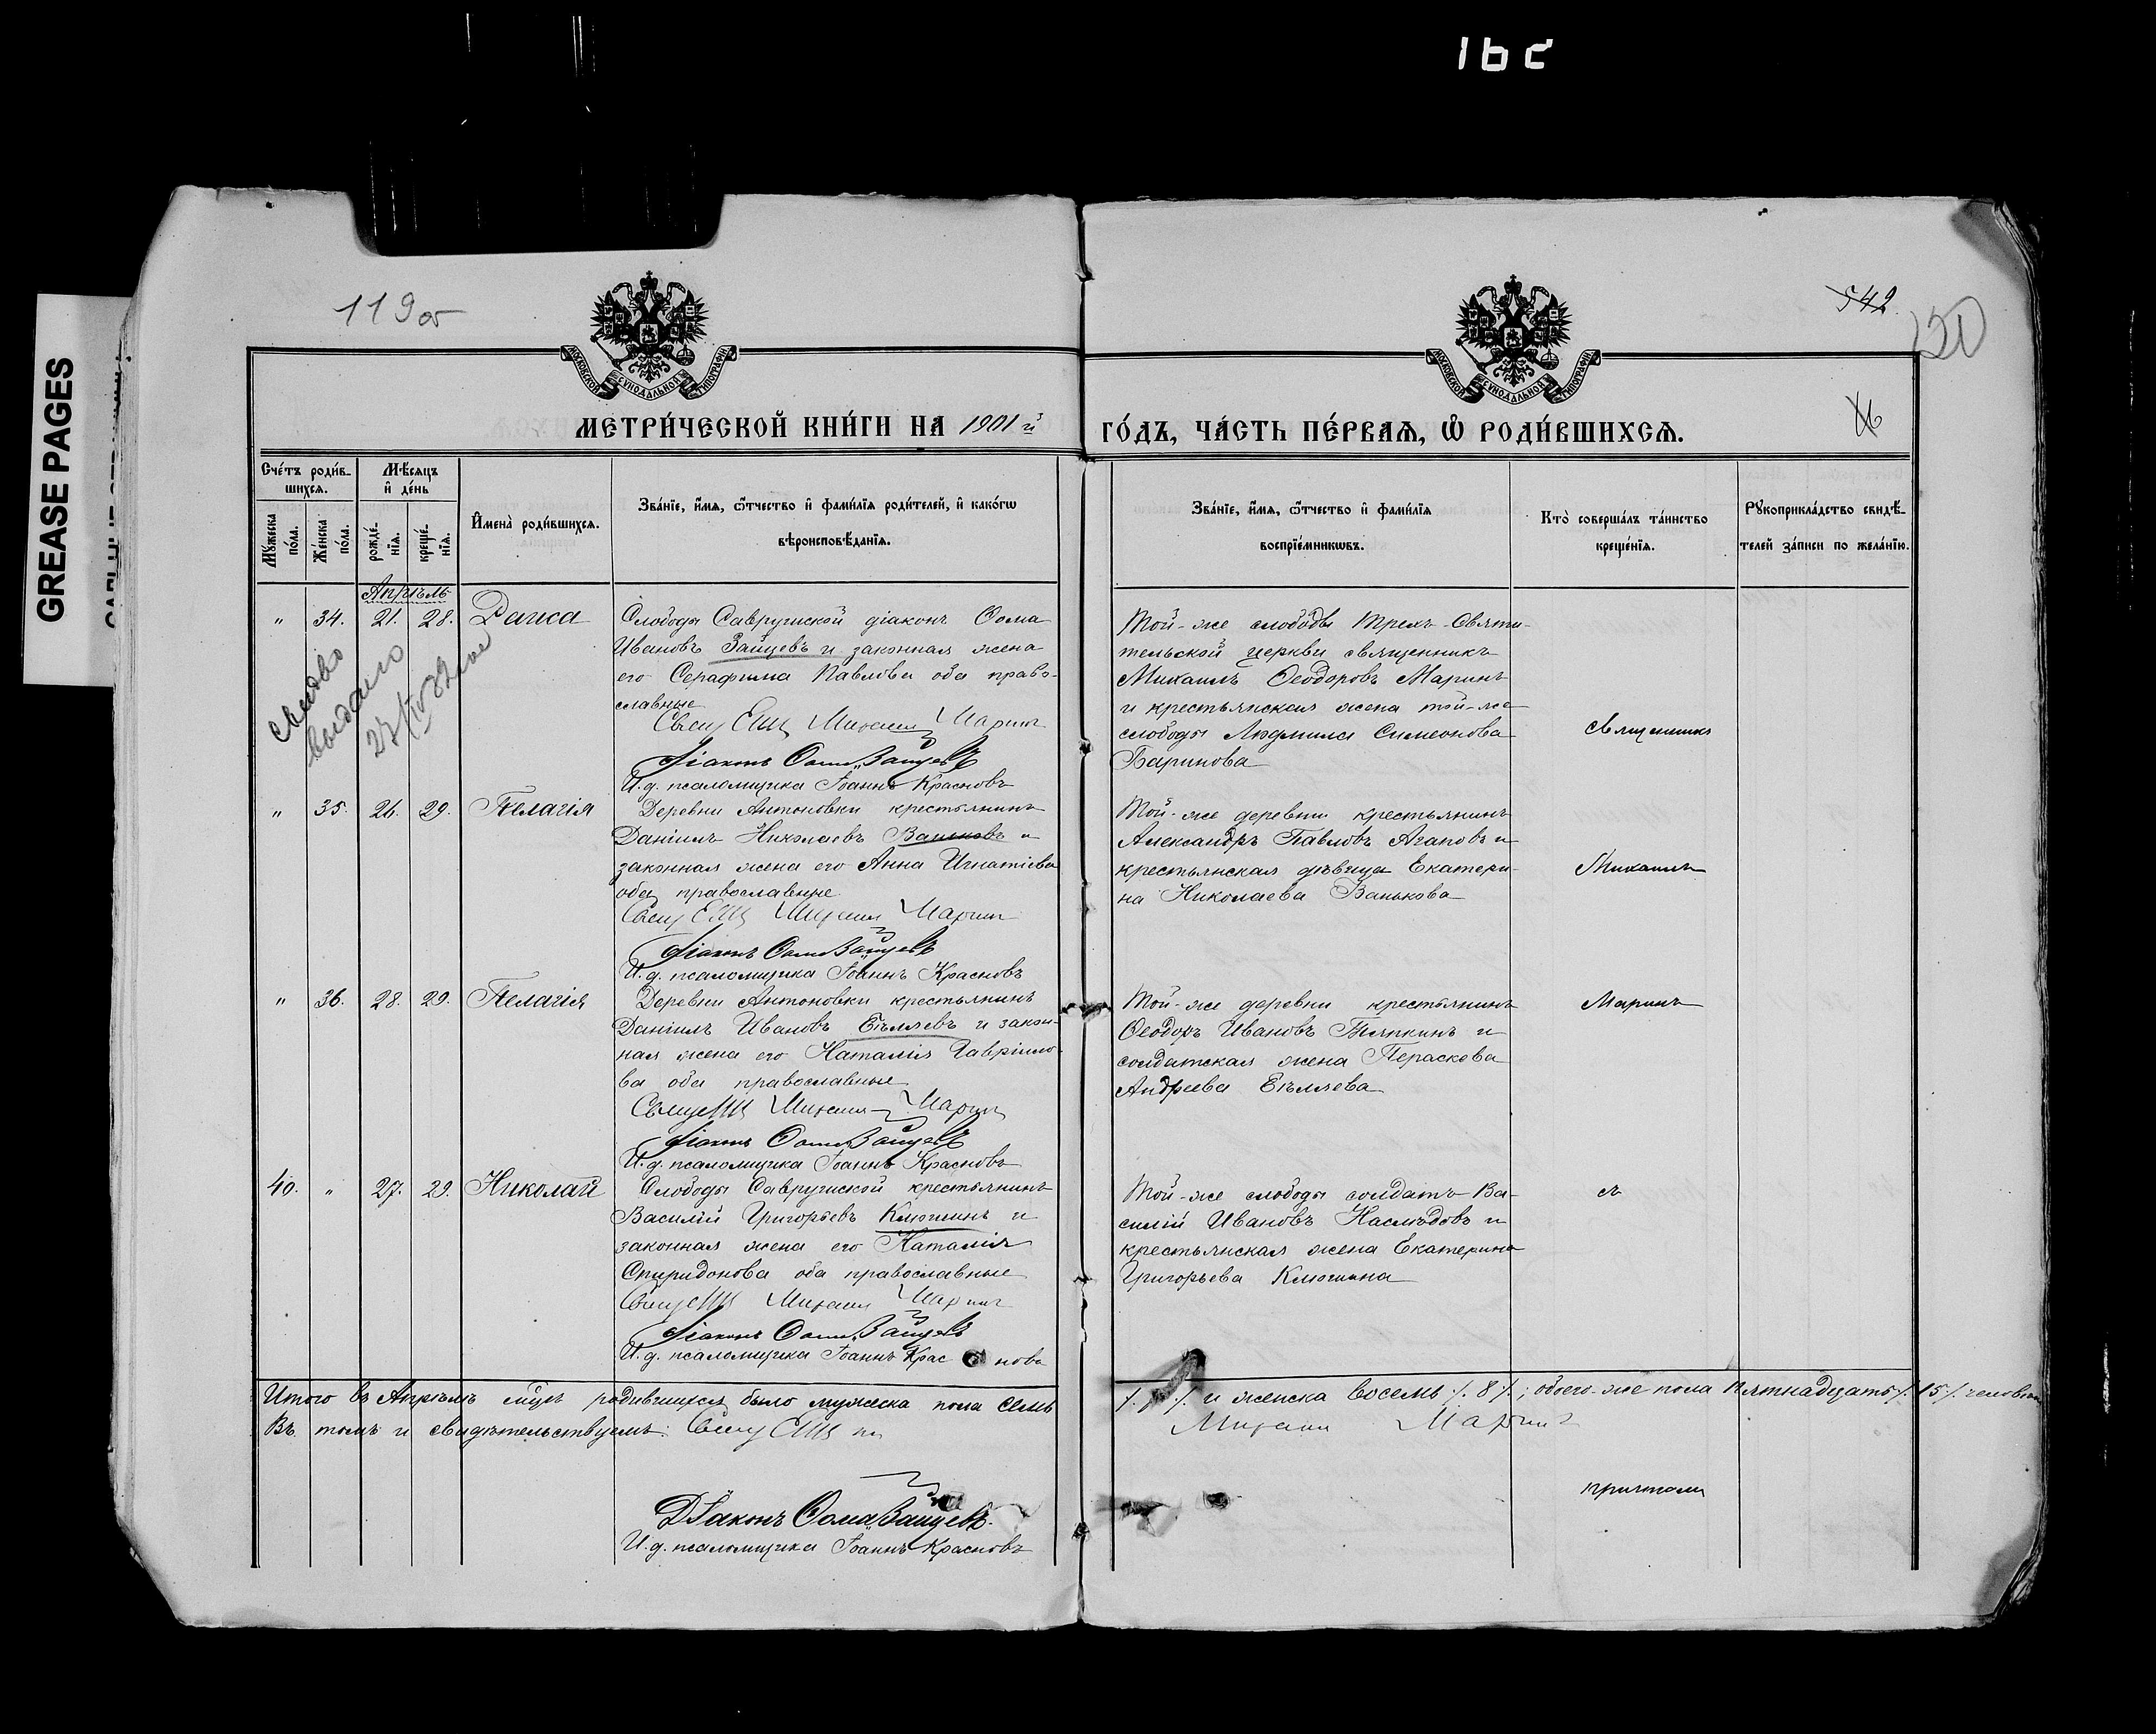 1bc
GREASE PAGES
119 об
542
120
МОСКОВСКОЙ СУНОДАЛЬНОЙ ТИПОГРАФІИ
МОСКОВСКОЙ СУНОДАЛЬНОЙ ТИПОГРАФІИ
МЕТРИ́ЧЕСКОЙ КНИ́ГИ НА 1901 й
ГО́ДЪ, ЧА́СТЬ ПЕ́РВАѦ, Ѡ҆ РОДИ́ВШИХСѦ.
Сче́тъ роди́в-
шихсѧ.
Мꙋ́жеска
по́ла.
Же́нска
по́ла.
Мѣ́сѧцъ
и҆ де́нь
рожде́-
нїѧ.
креще́-
нїѧ.
И҆мена̀ роди́вшихсѧ.
Зва́нїе, и҆́мѧ, ѻ҆́тчество и҆ фами́лїѧ роди́телей, и҆ како́гѡ
вѣроисповѣ́данїѧ.
Зва́нїе, и҆́мѧ, ѻ҆́тчество и҆ фами́лїѧ
воспрїе́мникѡвъ.
Кто̀ соверша́лъ та́инство
креще́нїѧ.
Рꙋкоприкла́дство свидѣ́-
телей за́писи по жела́нїю.
Апрѣль
" 34. 21. 28. Раиса
Слободы Саврушской діаконъ Ѳома
Ивановъ Зайцевъ и законная жена
его Серафима Павлова оба право-
славные
Михаилъ Маринъ
Діаконъ Ѳома Зайцевъ
И. д. псаломщика Іоаннъ Красновъ
Той-же слободы Трехъ-Святи-
тельской церкви священникъ
Михаилъ Ѳеодоровъ Маринъ
и крестьянская жена той-же
слободы Людмила Симеонова
Баринова
священникъ
выдано
" 35. 26. 29. Пелагія
Деревни Антоновки крестьянинъ
Даніилъ Николаевъ Ваньковъ и
законная жена его Анна Игнатіева
оба православные
Михаилъ Маринъ
Діаконъ Ѳома Зайцевъ
И. д. псаломщика Іоаннъ Красновъ
Той-же деревни крестьянинъ
Александръ Павловъ Агаповъ и
крестьянская дѣвица Екатери-
на Николаева Ванькова
Михаилъ
" 36. 28. 29. Пелагія
Деревни Антоновки крестьянинъ
Даніилъ Ивановъ Бѣляевъ и закон-
ная жена его Наталія Гавріило-
ва оба православные
Михаилъ Маринъ
Діаконъ Ѳома Зайцевъ
И. д. псаломщика Іоаннъ Красновъ
Той-же деревни крестьянинъ
Ѳеодоръ Ивановъ Тяпкинъ и
солдатская жена Параскева
Андреева Бѣляева
Маринъ
40. " 27. 29. Николай
Слободы Саврушской крестьянинъ
Василій Григорьевъ Клюшинъ и
законная жена его Наталія
Спиридонова оба православные
Михаилъ Маринъ
Діаконъ Ѳома Зайцевъ
И. д. псаломщика Іоаннъ Красновъ
Той-же слободы солдатъ Ва-
силій Ивановъ Наслѣдовъ и
крестьянская жена Екатерина
Григорьева Клюшина
съ
Итого въ Апрѣлѣ м-цѣ родившихся было мужеска пола семь
/. 7 /. и женска восемь /. 8 /.; обоего-же пола пятнадцать /. 15 /. человѣкъ
Въ томъ и свидѣтельствуемъ:
Михаилъ Маринъ
причтомъ
Діаконъ Ѳома Зайцевъ.
И. д. псаломщика Іоаннъ Красновъ